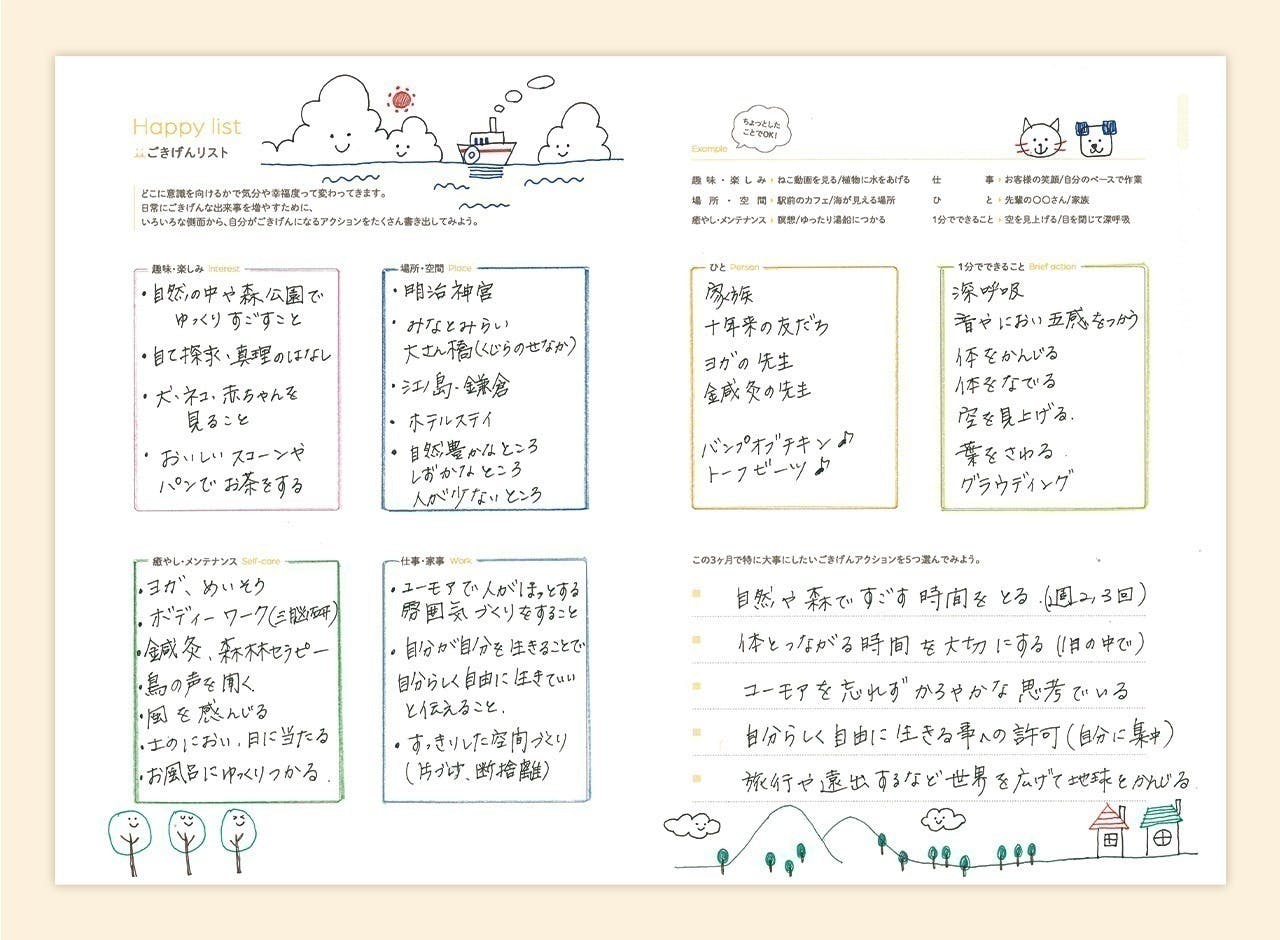 Happy list
ごきげんリスト
どこに意識を向けるかで気分や幸福度って変わってきます。
日常にごきげんな出来事を増やすために、
いろいろな側面から、自分がごきげんになるアクションをたくさん書き出してみよう。
趣味・楽しみ Interest
・自然の中や森、公園で
ゆっくりすごすこと
・自て探求・真理のはなし
・犬・ネコ・赤ちゃんを
見ること
・おいしいスコーンや
パンでお茶をする
場所・空間 Place
・明治神宮
・みなとみらい
大さん橋(くじらのせなか)
・江ノ島・鎌倉
・ホテルステイ
・自然豊かなところ
しずかなところ
人が少ないところ
癒やし・メンテナンス Self-care
・ヨガ、めいそう
・ボディーワーク(三脳研)
・鍼灸、森林セラピー
・鳥の声を聞く
・風を感んじる
・土のにおい、日に当たる
・お風呂にゆっくりつかる.
仕事・家事 Work
・ユーモアで人がほっとする
雰囲気づくりをすること
・自分が自分を生きることで
自分らしく自由に生きていい
と伝えること.
・すっきりした空間づくり
(片づけ、断捨離)
Example
ちょっとした
ことでOK!
趣味・楽しみ ねこ動画を見る/植物に水をあげる
場所・空間 駅前のカフェ/海が見える場所
癒やし・メンテナンス 瞑想/ゆったり湯船につかる
仕事 お客様の笑顔/自分のペースで作業
ひと 先輩の〇〇さん/家族
1分でできること 空を見上げる/目を閉じて深呼吸
ひと Person
家族
十年来の友だち
ヨガの先生
金咸灸の先生
バンプオブチキン♪
トーフビーツ♪
1分でできること Brief action
深呼吸
音やにおい 五感をつかう
体をかんじる
体をなでる
空を見上げる.
葉をさわる.
グラウディング
この3ヶ月で特に大事にしたいごきげんアクションを5つ選んでみよう。
自然や森ですごす時間をとる.(週2,3回)
体とつながる時間を大切にする(1日の中で)
ユーモアを忘れずかろやかな思考でいる
自分らしく自由に生きる事への許可(自分に集中)
旅行や遠出するなど世界を広げて地球とかんじる.